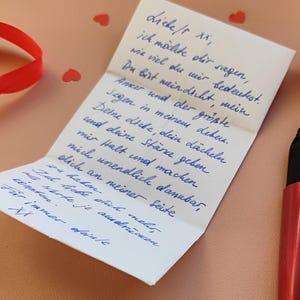 Liebe/r XX,
ich möchte dir sagen,
wie viel du mir bedeutest.
Du bist mein Licht, mein
Anker und der größte
Segen in meinem Leben.
Deine Liebe, dein Lächeln
und deine Stärke geben
mir Halt und machen
mich unendlich dankbar,
dich an meiner Seite
zu haben. Ich mehr,
als Worte je ausdrücken
können.
Für immer deine
XX